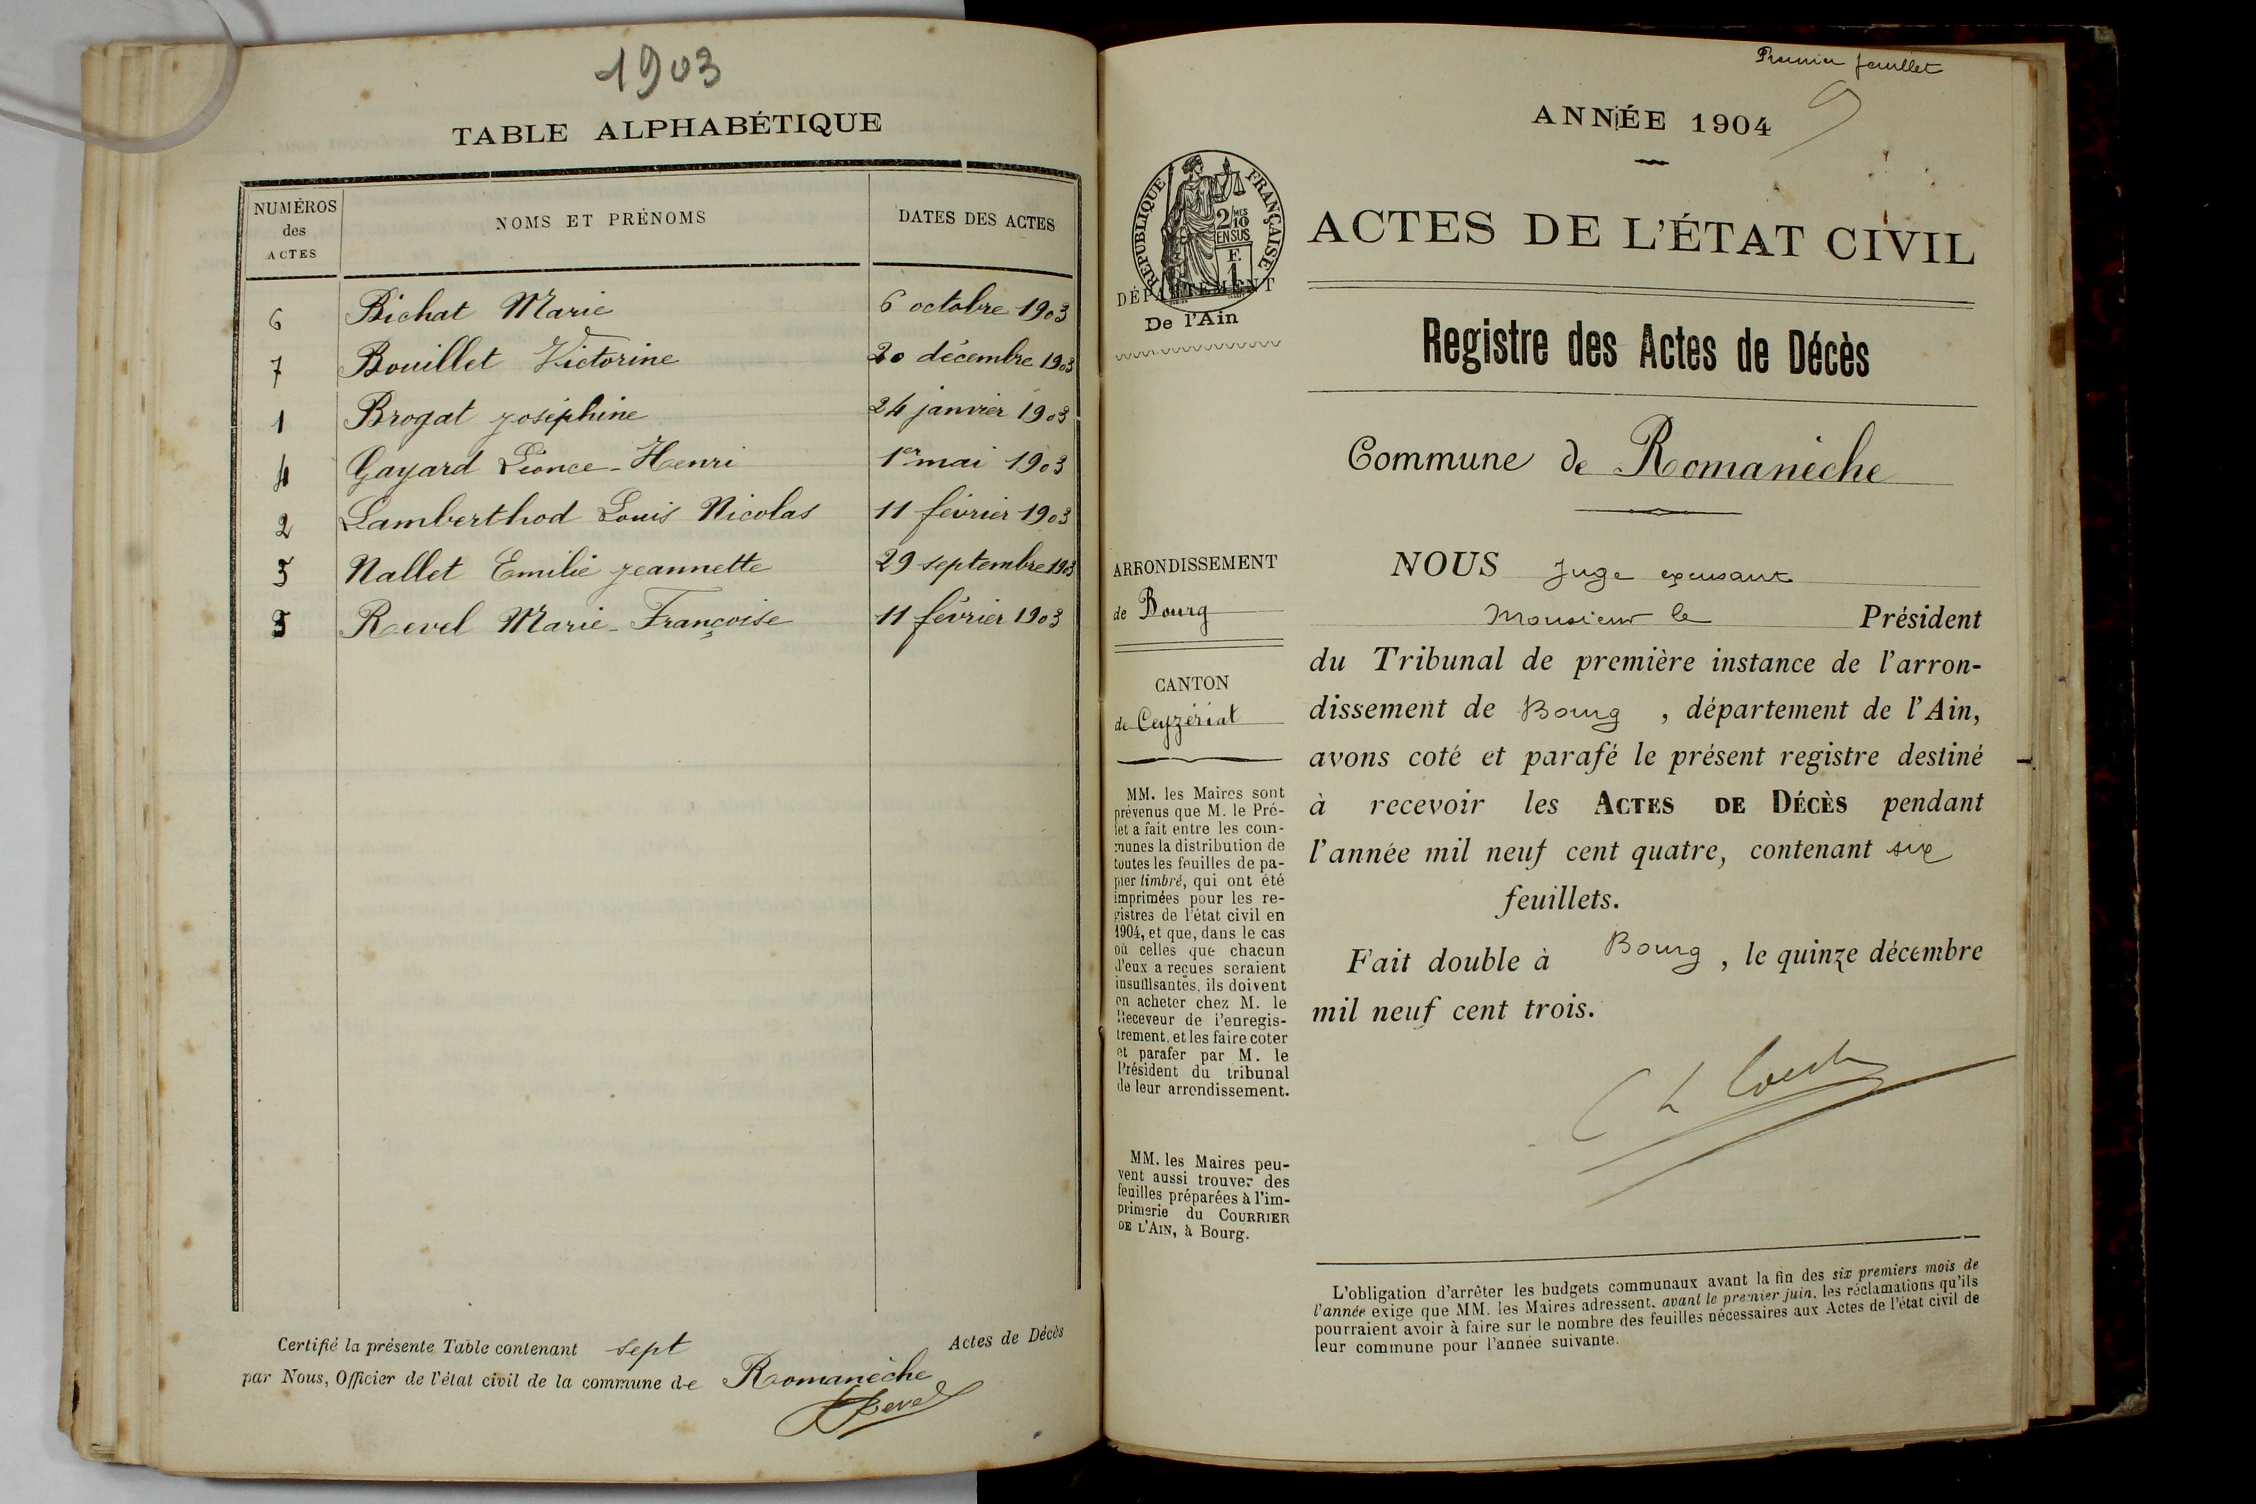 1903
TABLE ALPHABÉTIQUE
NUMÉROS des ACTES NOMS ET PRÉNOMS DATES DES ACTES
6 Bichat Marie 6 octobre 1903
7 Bouillet Victorine 20 décembre 1903
1 Brogat Joséphine 24 janvier 1903
4 Gayard Léonce-Henri 1er mai 1903
2 Lamberthod Louis Nicolas 11 février 1903
5 Nallet Emilie Jeannette 29 septembre 1903
3 Revel Marie-Françoise 11 février 1903
Certifié la présente Table contenant sept Actes de Décès
par Nous, Officier de l'état civil de la commune de Romanèche
Revel
Premier feuillet
ANNÉE 1904
RÉPUBLIQUE FRANÇAISE
2/10 MES
EN SUS
F.
1
DÉPARTEMENT
De l'Ain
ACTES DE L'ÉTAT CIVIL
Registre des Actes de Décès
Commune de Romanèche
ARRONDISSEMENT
de Bourg
CANTON
de Ceyzériat
MM. les Maires sont
prévenus que M. le Pré-
fet a fait entre les com-
munes la distribution de
toutes les feuilles de pa-
pier timbré, qui ont été
imprimées pour les re-
gistres de l'état civil en
1904, et que, dans le cas
où celles que chacun
d'eux a reçues seraient
insuffisantes, ils doivent
en acheter chez M. le
Receveur de l'enregis-
trement, et les faire coter
et parafer par M. le
Président du tribunal
de leur arrondissement.
MM. les Maires peu-
vent aussi trouver des
feuilles préparées à l'im-
primerie du COURRIER
DE L'AIN, à Bourg.
NOUS Juge excusant
Monsieur le Président
du Tribunal de première instance de l'arron-
dissement de Bourg , département de l'Ain,
avons coté et parafé le présent registre destiné
à recevoir les ACTES DE DÉCÈS pendant
l'année mil neuf cent quatre, contenant six
feuillets.
Fait double à Bourg , le quinze décembre
mil neuf cent trois.
L'obligation d'arrêter les budgets communaux avant la fin des six premiers mois de
l'année exige que MM. les Maires adressent, avant le premier juin, les réclamations qu'ils
pourraient avoir à faire sur le nombre des feuilles nécessaires aux Actes de l'état civil de
leur commune pour l'année suivante.